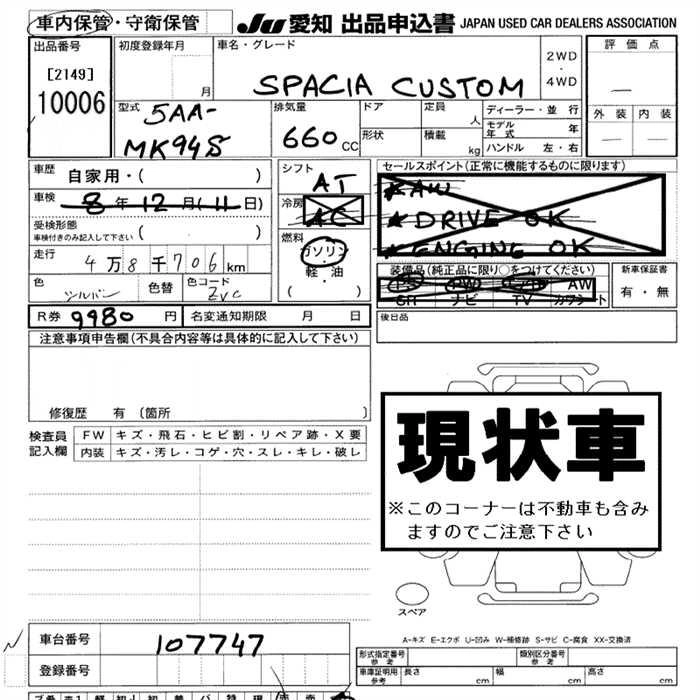 車内保管・守衛保管
JU 愛知 出品申込書 JAPAN USED CAR DEALERS ASSOCIATION
出品番号 初度登録年月 車名・グレード 評価点
[2149]
10006 月 SPACIA CUSTOM 2WD・4WD
外装 内装
型式 5AA-MK94S
排気量 660 CC
ドア 定員 人
形状 積載 kg
ディーラー・並行
モデル年式 年
ハンドル 左・右
車歴 自家用・( )
車検 8年12月(11日)
受検形態
車検付きのみ記入して下さい ( )
走行 4万8千706km
色 シルバー 色替 色コード ZVC
シフト AT
冷房 AC
燃料 ガソリン・軽・油
( )
セールスポイント(正常に機能するものに限ります)
★AW
★DRIVE OK
★ENGING OK
装備品(純正品に限り○をつけてください) 新車保証書
PS PW AW 有・無
SR ナビ TV カワシート
R券 9980 円 名変通知期限 月 日
後日品
注意事項申告欄(不具合内容等は具体的に記入して下さい)
修復歴 有 〔箇所 〕
検査員記入欄 FW キズ・飛石・ヒビ割・リペア跡・X要
内装 キズ・汚レ・コゲ・穴・スレ・キレ・破レ
現状車
※このコーナーは不動車も含み
ますのでご注意下さい
スペア
A-キズ E-エクボ U-凹み W-補修跡 S-サビ C-腐食 XX-交換済
車台番号 107747
登録番号
形式指定番号 参考 類別区分番号 参考
車庫証明用 参考 長さ cm 幅 cm 高さ cm